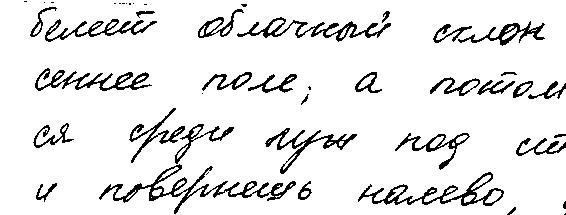 белеет облачный склон
сеннее поле; а потом
ся среди луж под ст
и повернешь налево,